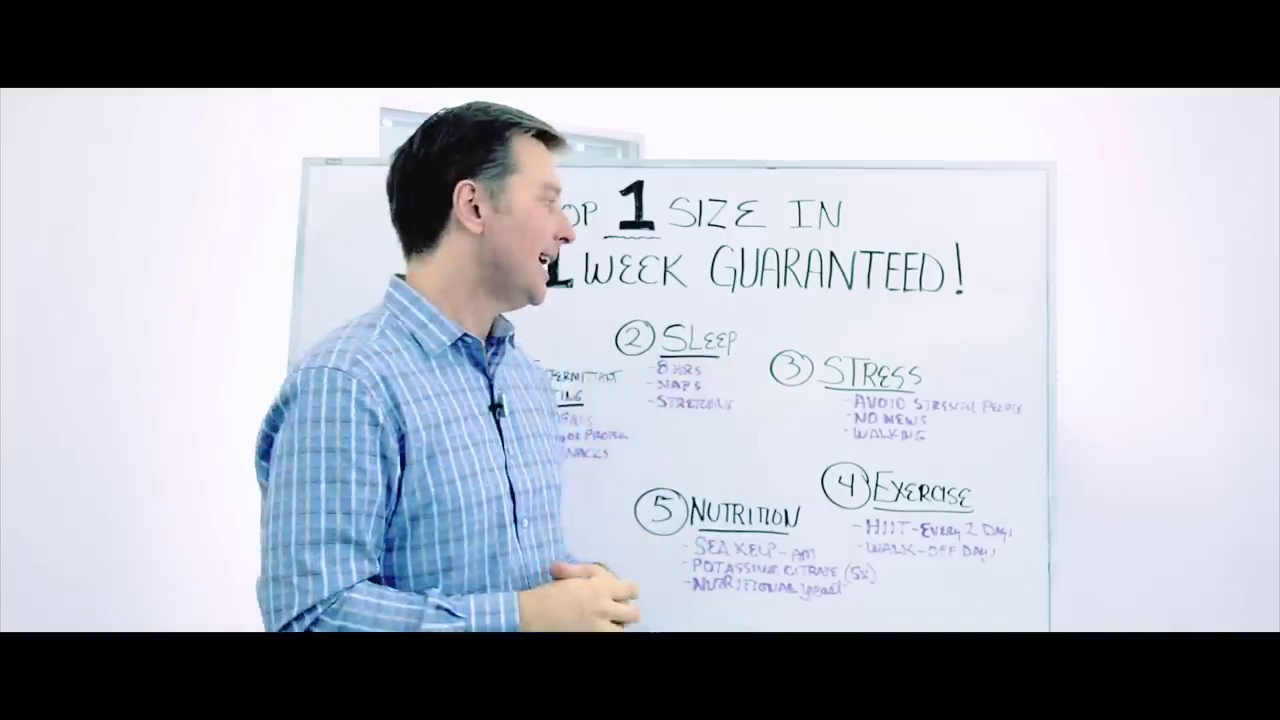 OP 1 SIZE IN
1 WEEK GUARANTEED!
TERMITTANT
TING
NACKS
② SLEEP
- 8 HRS
- NAPS
- STRETCHING
③ STRESS
- AVOID STRESSFUL PEOPLE
- NO NEWS
- WALKING
④ EXERCISE
- HIIT - EVERY 2 DAYS
- WALK - OFF DAYS
⑤ NUTRITION
- SEA KELP - AM
- POTASSIUM CITRATE (5X)
- NUTRITIONAL yeast